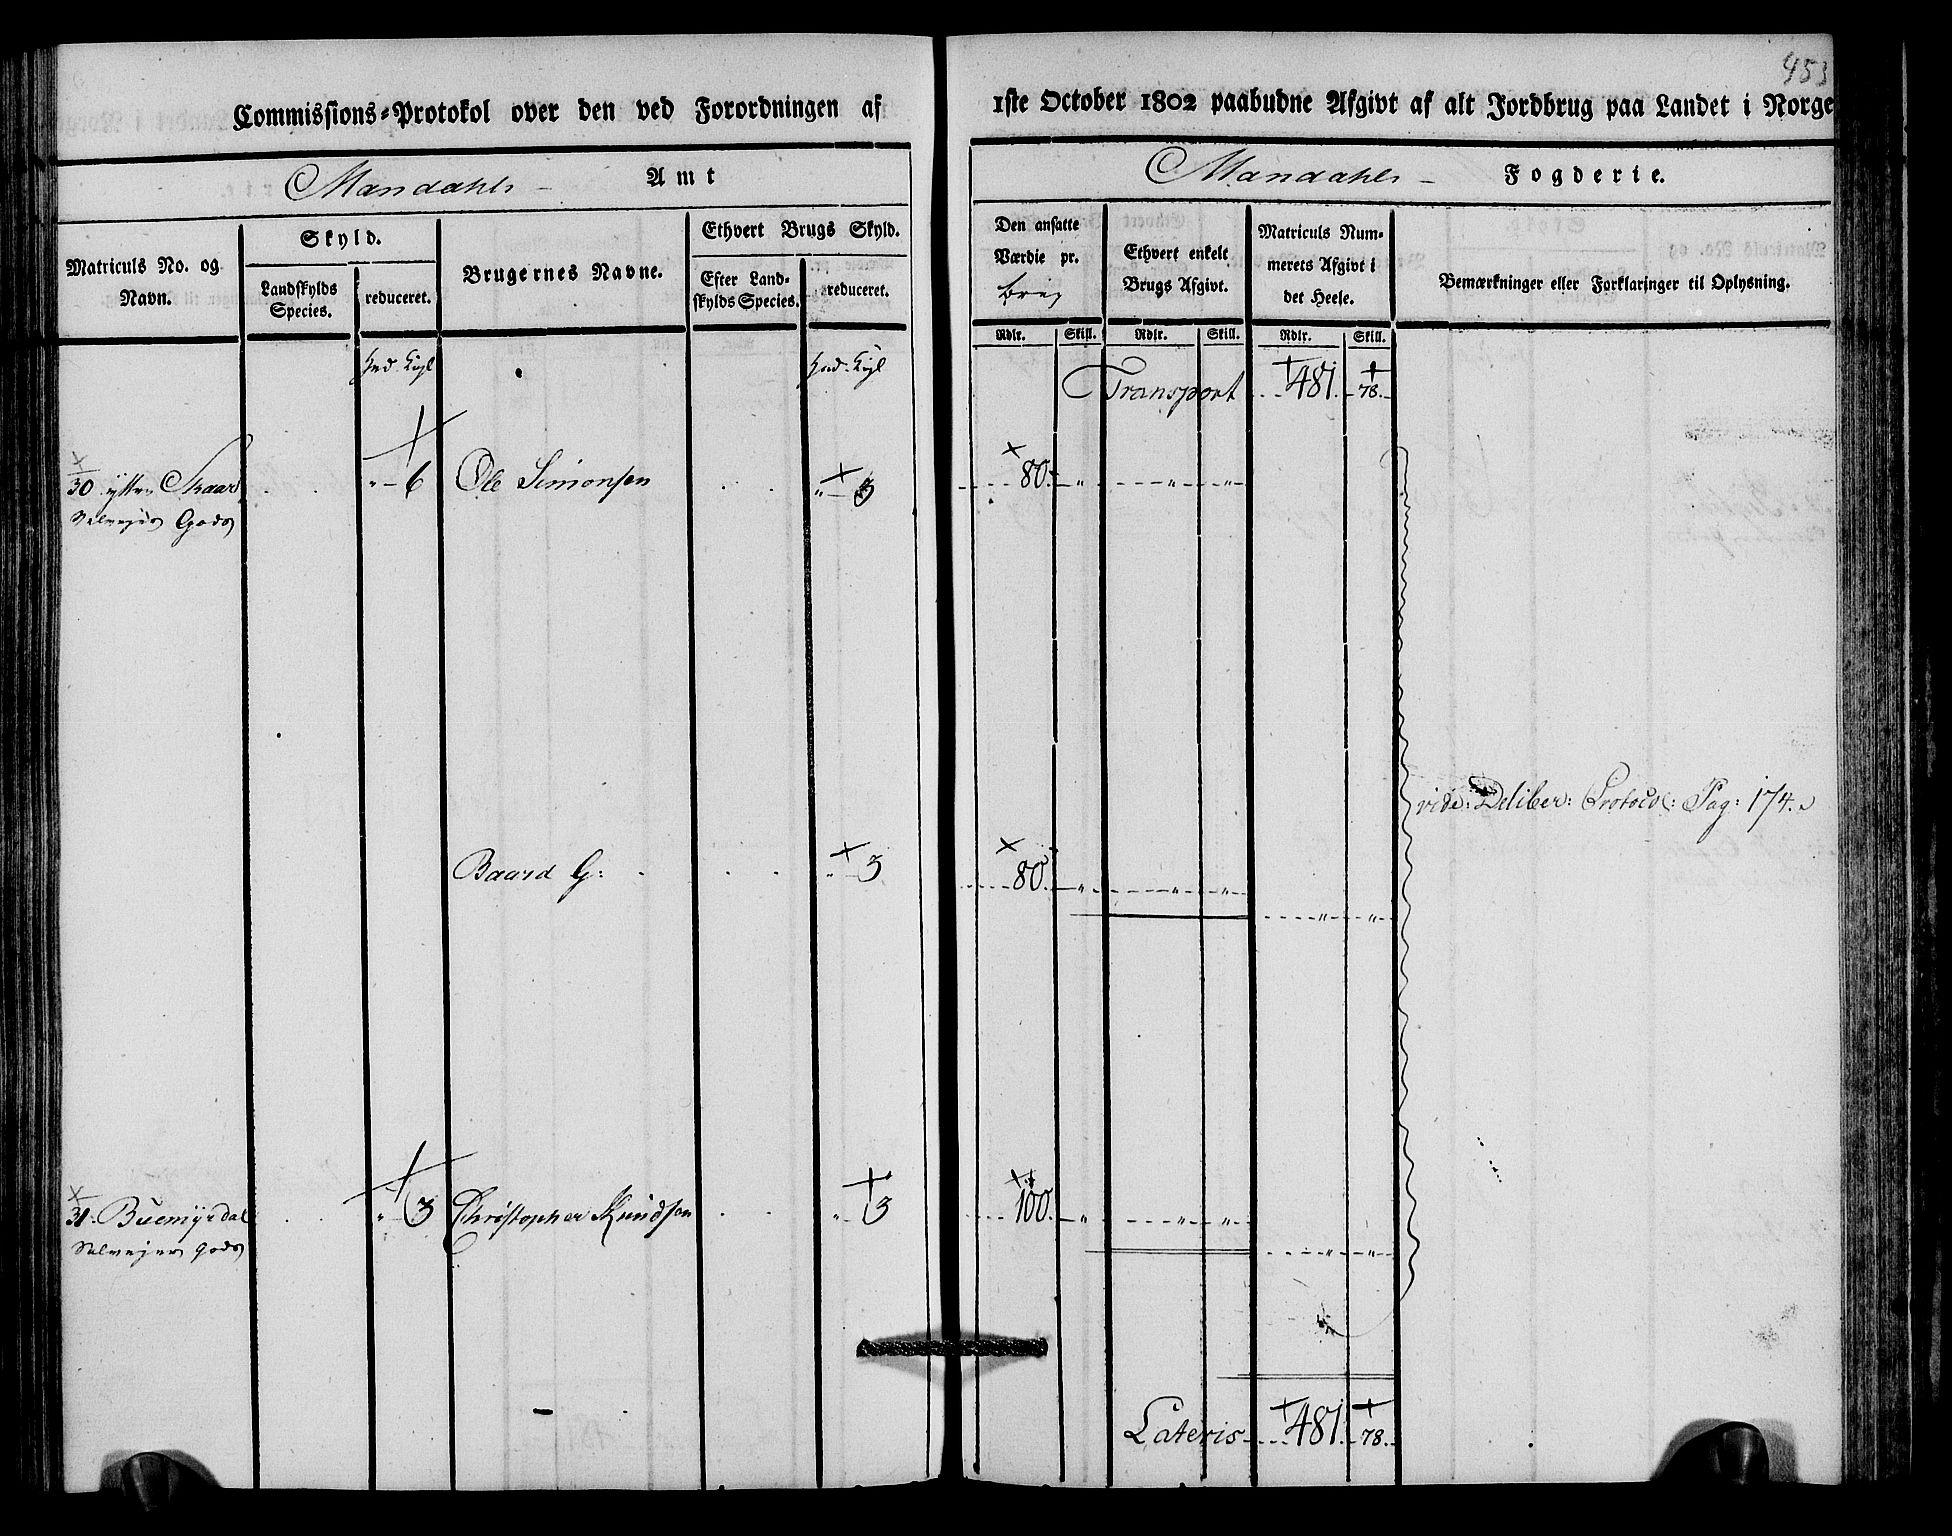 453
Commissions-Protokol over den ved Forordningen af 1ste October 1802 paabudne Afgivt af alt Jordbrug paa Landet i Norge
Mandahls Amt
Mandahls Fogderie.
Matriculs No. og Navn.
Skyld.
Landskylds Species.
reduceret.
Brugernes Navne.
Ethvert Brugs Skyld.
Efter Landskylds Species.
reduceret.
Den ansatte Værdie pr.
Ethvert enkelt Brugs Afgivt.
Matriculs Nummerets Afgivt i det Heele.
Bemærkninger eller Forklaringer til Oplysning.
Rdlr. Skill. Rdlr. Skill. Rdlr. Skill.
Transport 481. 78.
30 yttre Skaar " 6 Ole Simonsen " 3 80. " " "
Selveyer Gods
vide: Deliber: Protocol: Pag: 174.
Baard G: " 3 80. " " "
" "
31. Buemyrdal " 3 Christopher Knudsen " 3 100. " " "
Selvejer Gods " "
Lateris 481. 78.